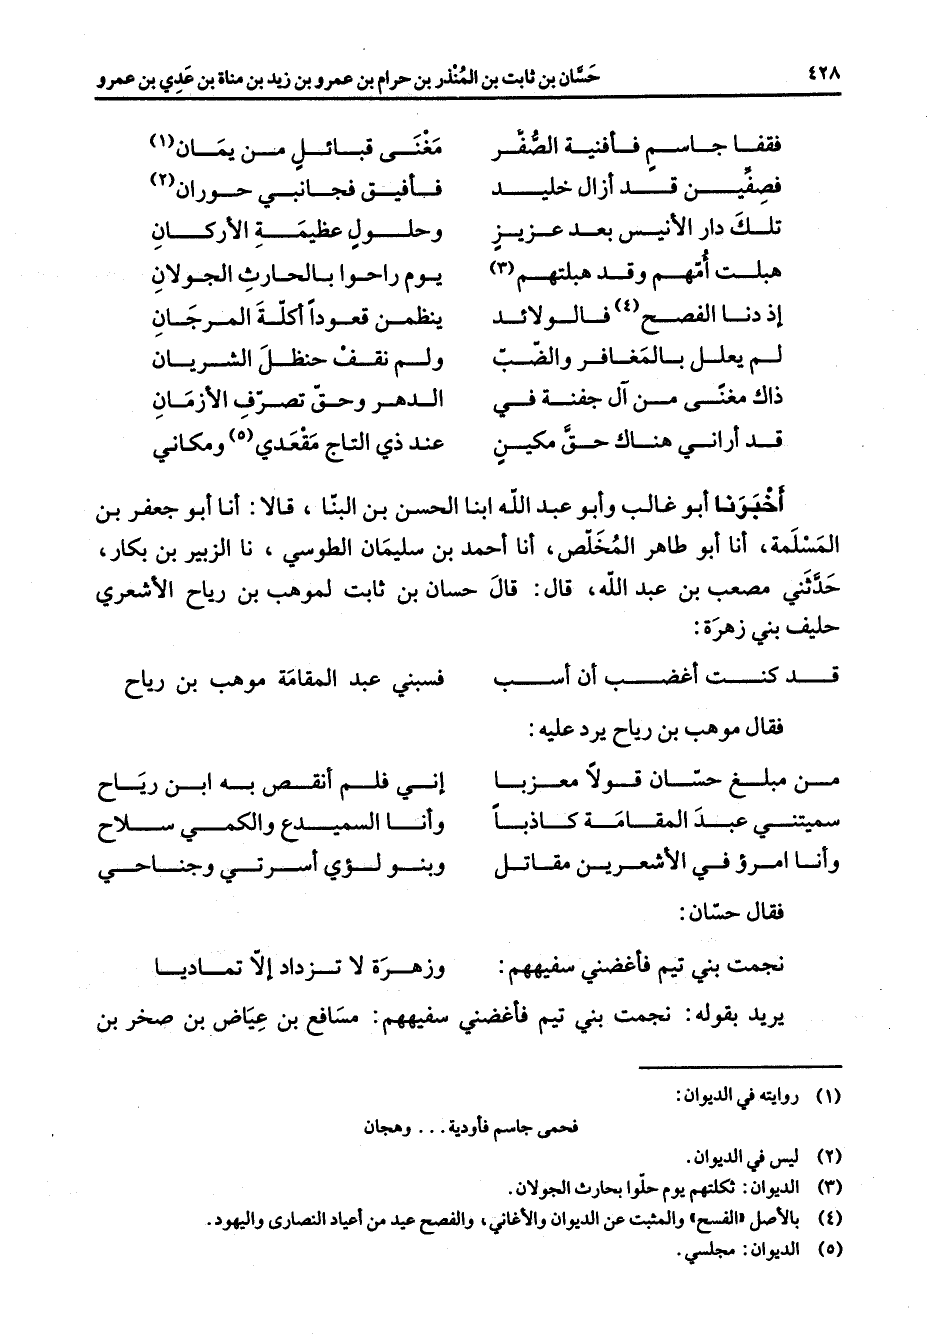 ٤٢٨ حَسَّان بن ثابت بن المُنْذر بن حرام بن عمرو بن زيد بن مناة بن عَدِي بن عمرو
فقفـا جـاسـمٍ فـأفنيـة الصُّفَّـر مَغْنَـى قبـائـلٍ مـن يمَـان(١)
فصِفَّيـن قـد أزال خليـد فـأفيـق فجـانبـي حـوران(٢)
تلـكَ دار الأنيـس بعـد عـزيـزٍ وحلـولٍ عظيمَـةِ الأركـانِ
هبلـت أُمّهـم وقـد هبلتهـم(٣) يـوم راحـوا بـالحـارثِ الجـولانِ
إذ دنـا الفصـح(٤) فـالـولائـد ينظمـن قعـوداً أكلّـةَ المـرجَـانِ
لـم يعلـل بـالمَغـافـر والصّـبّ ولـم نقـفْ حنظـلَ الشـريـان
ذاك مغنّـى مـن آل جفنـة فـي الـدهـر وحـقّ تصـرّفِ الأزمَـان
قـد أرانـي هنـاك حـقَّ مكيـنٍ عند ذي التاج مَقْعَدي(٥) ومكاني
أَخْبَرَنا أبو غالب وأبو عبد اللّه ابنا الحسن بن البنّا ، قالا: أنا أبو جعفر بن
المَسْلَمة، أنا أبو طاهر المُخَلّص، أنا أحمد بن سليمَان الطوسي ، نا الزبير بن بكار،
حَدَّثَني مصعب بن عبد اللّه، قال: قالَ حسان بن ثابت لموهب بن رياح الأشعري
حليف بني زهرَة:
قـد كنـت أغضـب أن أسـب فسبني عبد المقامَة موهب بن رياح
فقال موهب بن رياح يرد عليه:
مـن مبلـغ حسّـان قـولاً معـزبـا إنـي فلـم أنقـص بـه ابـن ريَـاح
سميتنـي عبـدَ المقـامَـة كـاذبـاً وأنـا السميـدع والكمـي سـلاح
وأنـا امـرؤ فـي الأشعـريـن مقـاتـل وبنـو لـؤي أسـرتـي وجنـاحـي
فقال حسّان:
نجمت بني تيم فأغضني سفيههم: وزهـرَة لا تـزداد إلاّ تمـاديـا
يريد بقوله: نجمت بني تيم فأغضني سفيههم: مسَافع بن عِيَاض بن صخر بن
(١) روايته في الديوان:
فحمى جاسم فأودية . . . وهجان
(٢) ليس في الديوان.
(٣) الديوان: ثكلتهم يوم حلّوا بحارث الجولان.
(٤) بالأصل «الفسح» والمثبت عن الديوان والأغاني، والفصح عيد من أعياد النصارى واليهود.
(٥) الديوان: مجلسي.